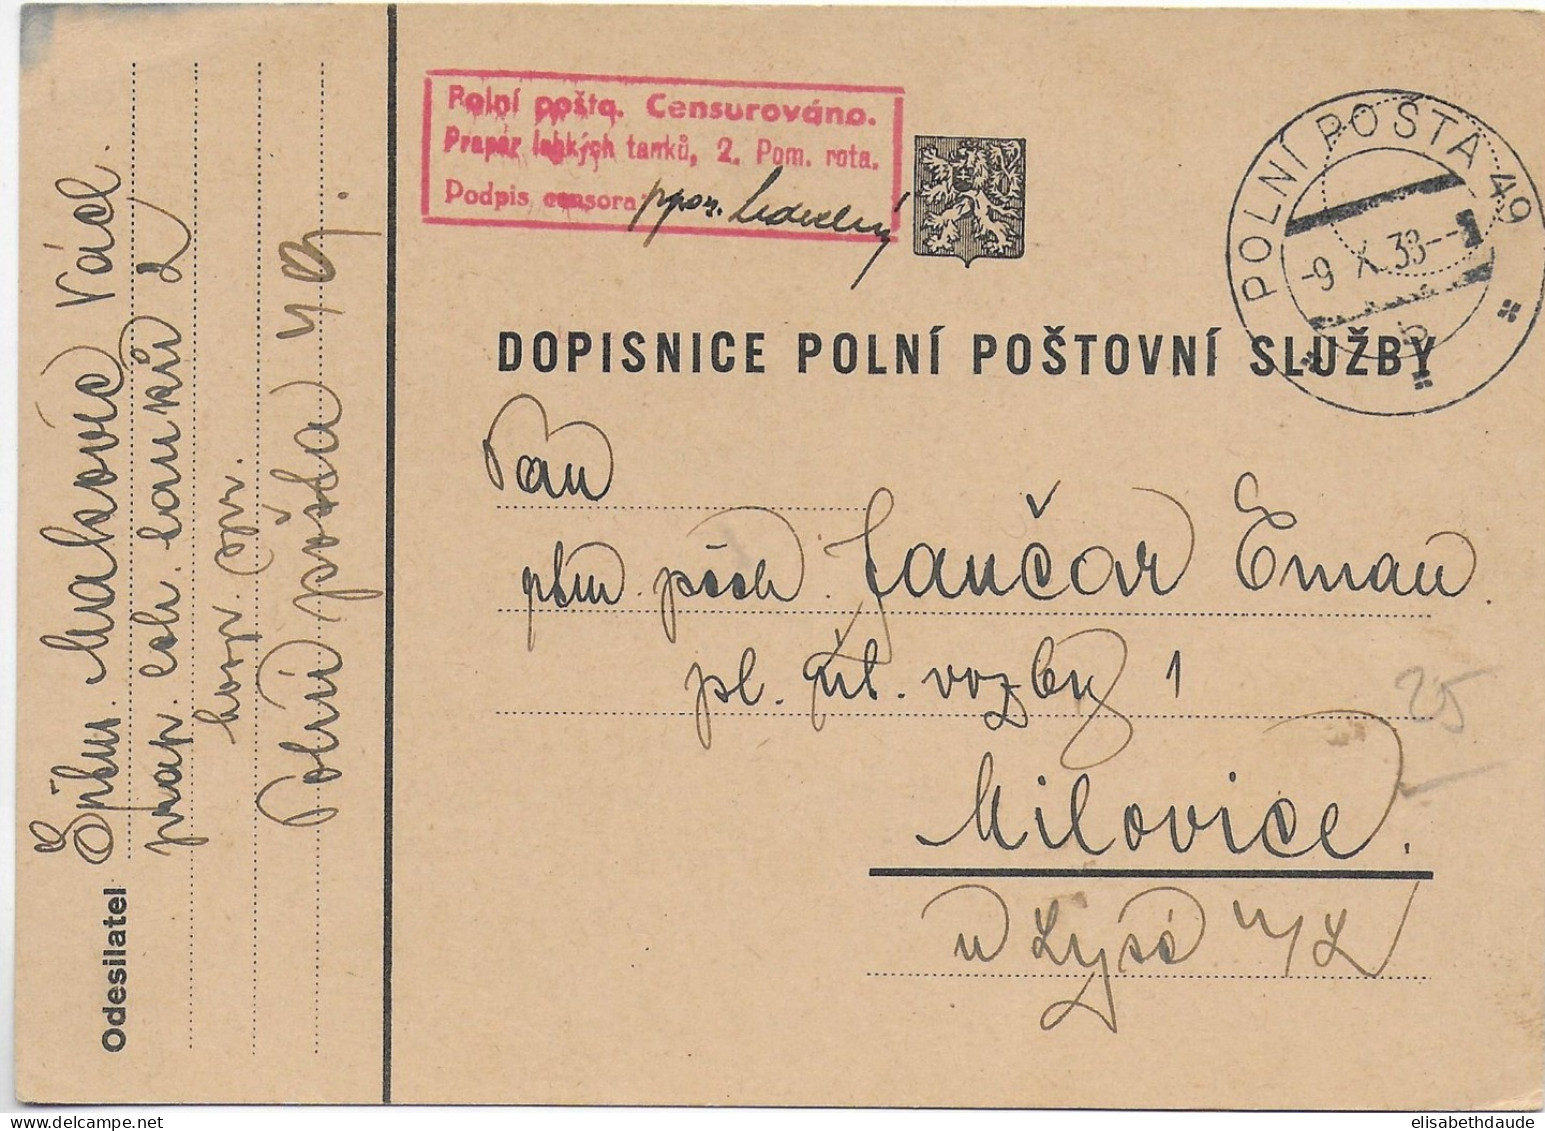 Polní pošta. Censurováno.
Prapor lehkých tanků, 2. Pom. rota.
Podpis censora:
POLNÍ POŠTA 49
-9 X. 38--
b
DOPISNICE POLNÍ POŠTOVNÍ SLUŽBY
Pan
pěch. Jančar Eman.
pl. út. vozby 1
Milovice.
u Lysé n/L
25
Odesilatel
Makovic Václ.
prap. leh. tanků 2
Polní pošta 49.
elisabethdaude